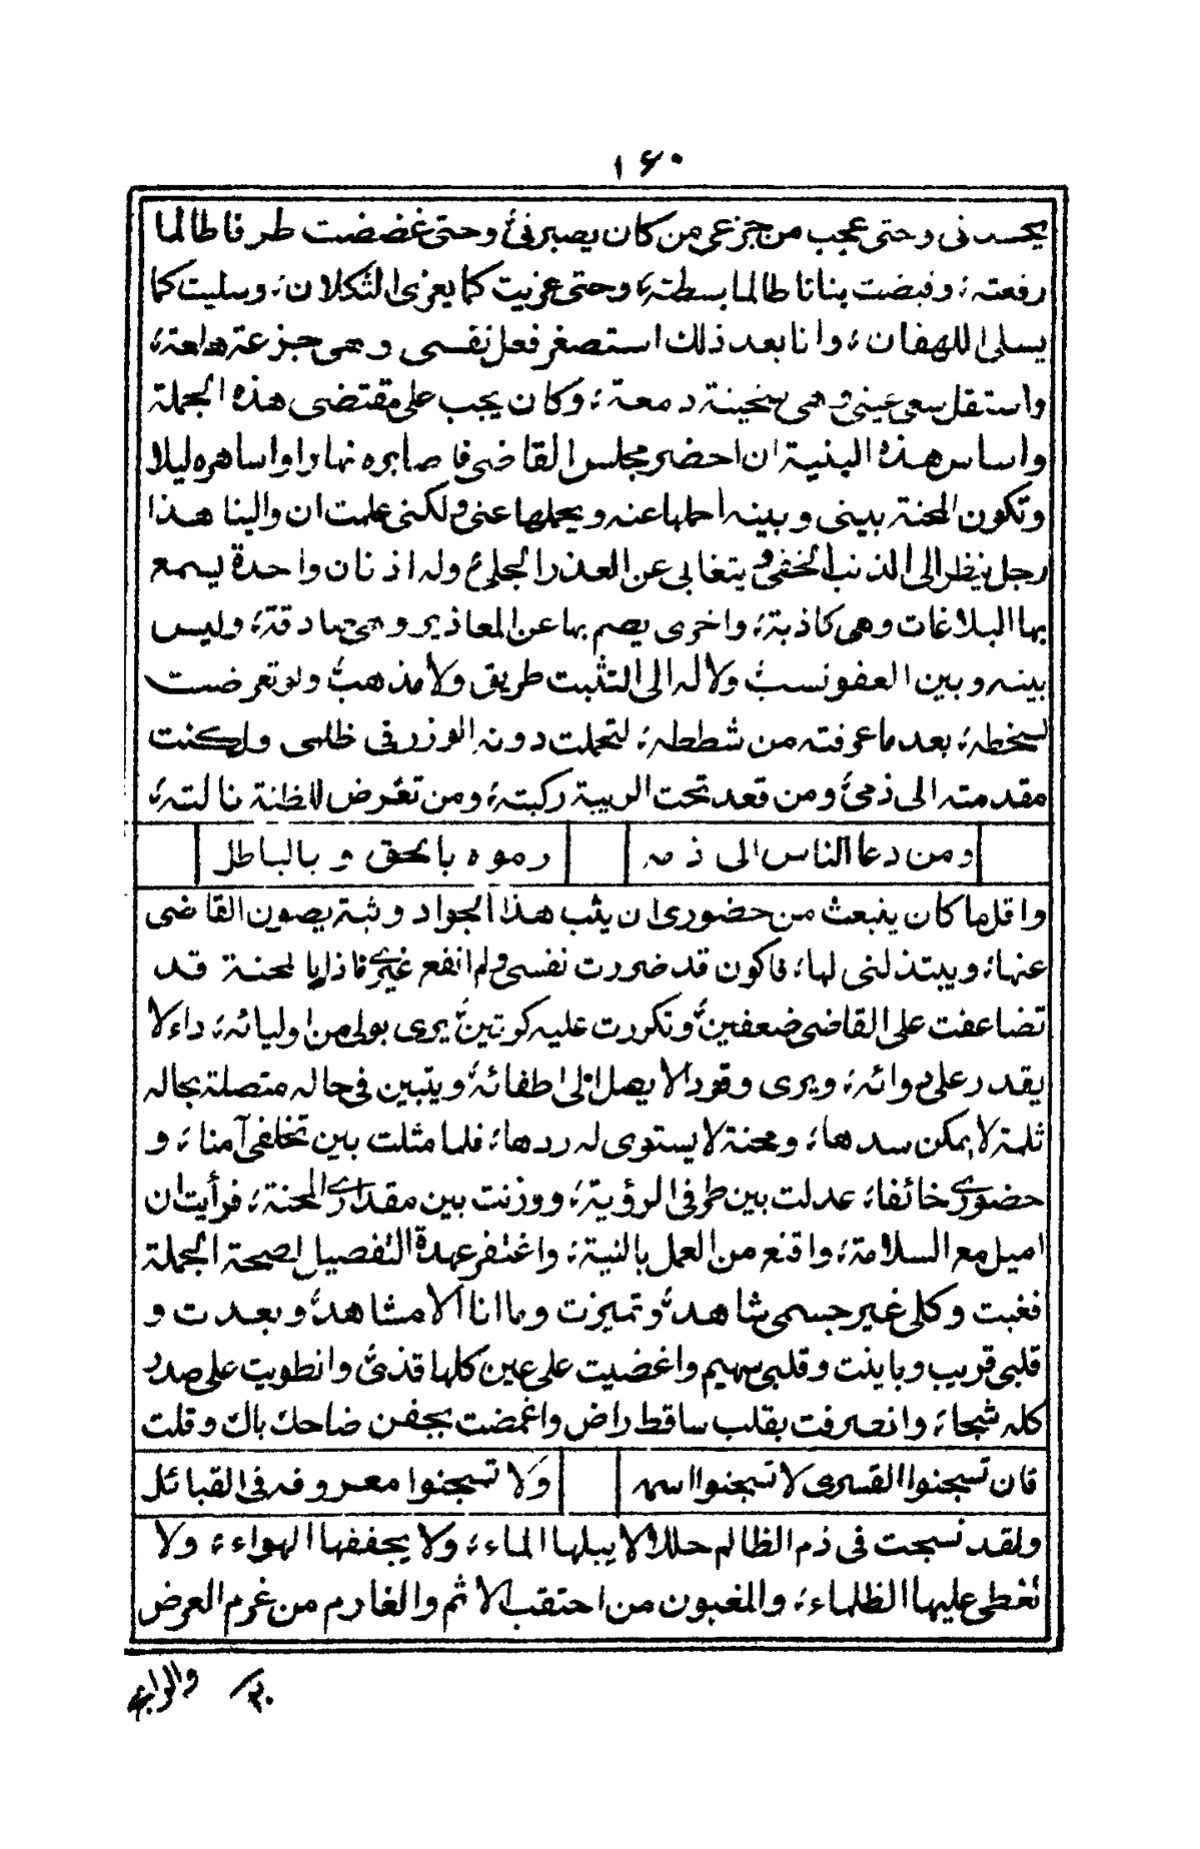 ١٦٠
يحسدنى وحتى عجب من جزعى من كان يصبرنى؛ وحتى غضضت طرفا طالما
رفعته؛ وقبضت بنانا طالما بسطته؛ وحتى عزيت كما يعزى الثكلان؛ وسليت كما
يسلى اللهفان؛ وانا بعد ذلك استصغر فعل نفسى وهى جزعة هلعة؛
واستقل سعى عينى وهى سخينة دمعة؛ وكان يجب على مقتضى هذه الجملة
واساس هذه البنية ان احضر مجلس القاضى فاصابره نهارا واساهره ليلا
وتكون المحنة بينى وبينه احملها عنه ويحملها عنى ولكنى علمت ان والينا هذا
رجل ينظر الى الذنب الخفى ويتغابى عن العذر الجلى؛ وله اذنان واحدة يسمع
بها البلاغات وهى كاذبة؛ واخرى يصم بها عن المعاذير وهى صادقة؛ وليس
بينه وبين العفو نسب؛ ولا له الى التثبت طريق ولا مذهب؛ ولو تعرضت
لسخطه؛ بعد ما عرفته من شططه؛ لتحملت دونه الوزر فى ظلمى ولكنت
مقدمته الى ذمى؛ ومن قعد تحت الريبة ركبته؛ ومن تعرض للظنة نالته؛
ومن دعا الناس الى ذمه رموه بالحق وبالباطل
واقل ما كان ينبعث من حضورى ان يثب هذا الجواد وثبة يصون القاضى
عنها؛ ويبتذلنى لها؛ فاكون قد ضررت نفسى ولم انفع غيرى فاذا بالمحنة قد
تضاعفت على القاضى ضعفين؛ وتكررت عليه كرتين؛ يرى بولى من اوليائه؛ داء لا
يقدر على دوائه؛ ويرى وقودا لا يصل الى اطفائه؛ ويتبين فى حاله متصلة بحاله
ثلمة لا يمكن سدها؛ ومحنة لا يستوى له ردها؛ فلما مثلت بين تخلفى آمنا؛ و
حضورى خائفا؛ عدلت بين طرفى الرؤية؛ ووزنت بين مقدارى المحنة؛ فرأيت ان
اميل مع السلامة؛ واقنع من العمل بالنية؛ واغتفر عهدة التفصيل لصحة الجملة
فغبت وكلى غير جسمى شاهد؛ وتميزت وما انا الا مشاهد؛ وبعدت و
قلبى قريب وباينت وقلبى سهيم واغضيت على عين كلها قذى؛ وانطويت على صدر
كله شجا؛ وانصرفت بقلب ساقط راض واغمضت بجفن ضاحك باك وقلت
فان تسجنوا القسرى لا تسجنوا اسمه ولا تسجنوا معروفه فى القبائل
ولقد نسجت فى ذم الظالم حللا لا يبلها الماء؛ ولا يجففها الهواء؛ ولا
تغطى عليها الظلماء؛ والمغبون من احتقب الاثم والغارم من غرم العرض